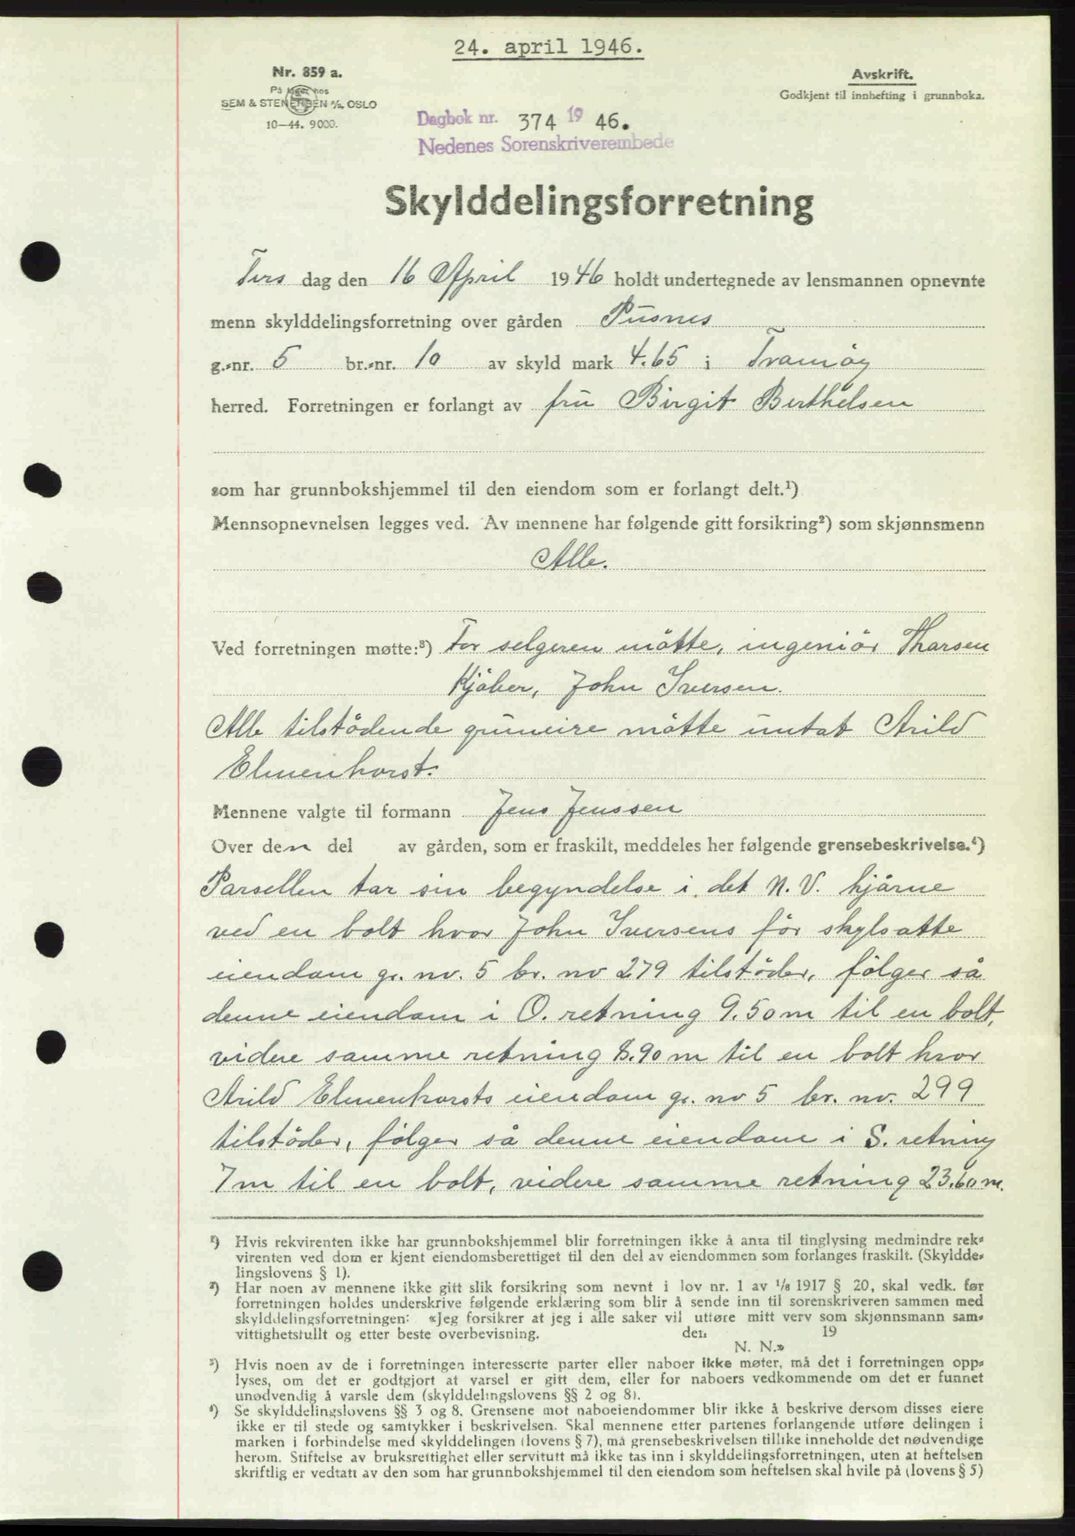 24. april 1946.
Nr. 859 a.
På lager hos
SEM & STENERSEN A/S, OSLO
10—44. 9000.
Avskrift.
Godkjent til innhefting i grunnboka.
Dagbok nr. 374 19 46.
Nedenes Sorenskriverembede
Skylddelingsforretning
Tirs dag den 16 April 1946 holdt undertegnede av lensmannen opnevnte
menn skylddelingsforretning over gården Pusnes
g.-nr. 5 br.-nr. 10 av skyld mark 4.65 i Tromöy
herred. Forretningen er forlangt av fru Birgit Berthelsen
som har grunnbokshjemmel til den eiendom som er forlangt delt.¹)
Mennsopnevnelsen legges ved. Av mennene har følgende gitt forsikring²) som skjønnsmenn
Alle.
Ved forretningen møtte:³) For selgeren mötte, ingeniör Tharsen
Kjöber, John Iversen.
Alle tilstödende gruneire mötte untat Arild
Elmenhorst.
Mennene valgte til formann Jens Jenssen
Over den del av gården, som er fraskilt, meddeles her følgende grensebeskrivelse.⁴)
Parsellen tar sin begyndelse i det N.V. hjörne
ved en bolt hvor John Iversens för skylsatte
eiendom gr. nr. 5 br. nr 279 tilstöder, fölger så
denne eiendom i O. retning 9.50 m til en bolt,
videre samme retning 8.90 m til en bolt hvor
Arild Elmenhorsts eiendom gr. nr 5 br. nr. 299
tilstöder, fölger så denne eiendom i S. retning
7 m til en bolt, videre samme retning 23.60 m.
¹) Hvis rekvirenten ikke har grunnbokshjemmel blir forretningen ikke å anta til tinglysing medmindre rek-
virenten ved dom er kjent eiendomsberettiget til den del av eiendommen som forlanges fraskilt. (Skyldde-
lingslovens § 1).
²) Har noen av mennene ikke gitt slik forsikring som nevnt i lov nr. 1 av ¹/₈ 1917 § 20, skal vedk. før
forretningen holdes underskrive følgende erklæring som blir å sende inn til sorenskriveren sammen med
skylddelingsforretningen: «Jeg forsikrer at jeg i alle saker vil utføre mitt verv som skjønnsmann sam-
vittighetsfullt og etter beste overbevisning. den 19
N. N.»
³) Hvis noen av de i forretningen interesserte parter eller naboer ikke møter, må det i forretningen opp-
lyses, om det er godtgjort at varsel er gitt dem, eller for naboers vedkommende om det er funnet
unødvendig å varsle dem (skylddelingslovens §§ 2 og 8).
⁴) Se skylddelingslovens §§ 3 og 8. Grensene mot naboeiendommer blir ikke å beskrive dersom disses eiere
ikke er til stede og samtykker i beskrivelsen. Skal mennene etter partenes forlangende utføre delingen i
marken i forbindelse med skylddelingen (lovens § 7), må grensebeskrivelsen tillike inneholde det nødvendige
herom. Stiftelse av bruksrettighet eller servitutt må ikke tas inn i skylddelingsforretningen, uten at heftelsen
skriftlig er vedtatt av den som har grunnbokshjemmel til den eiendom som heftelsen skal hvile på (lovens § 5)